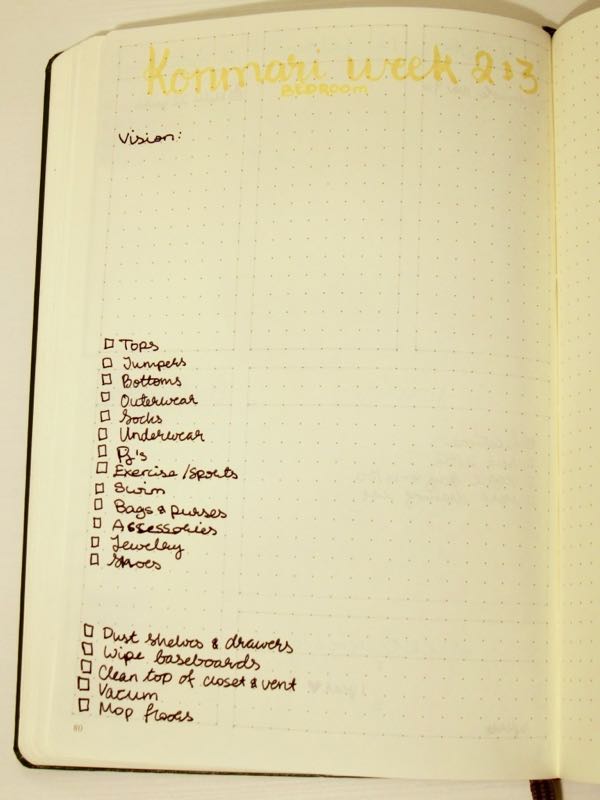 Konmari week 2 & 3
BEDROOM
Vision:
Tops
Jumpers
Bottoms
Outerwear
Socks
Underwear
Pj's
Exercise/Sports
Swim
Bags & purses
Accessories
Jewelry
Shoes
Dust shelves & drawers
Wipe baseboards
Clean top of closet & vent
Vacum
Mop floors
80